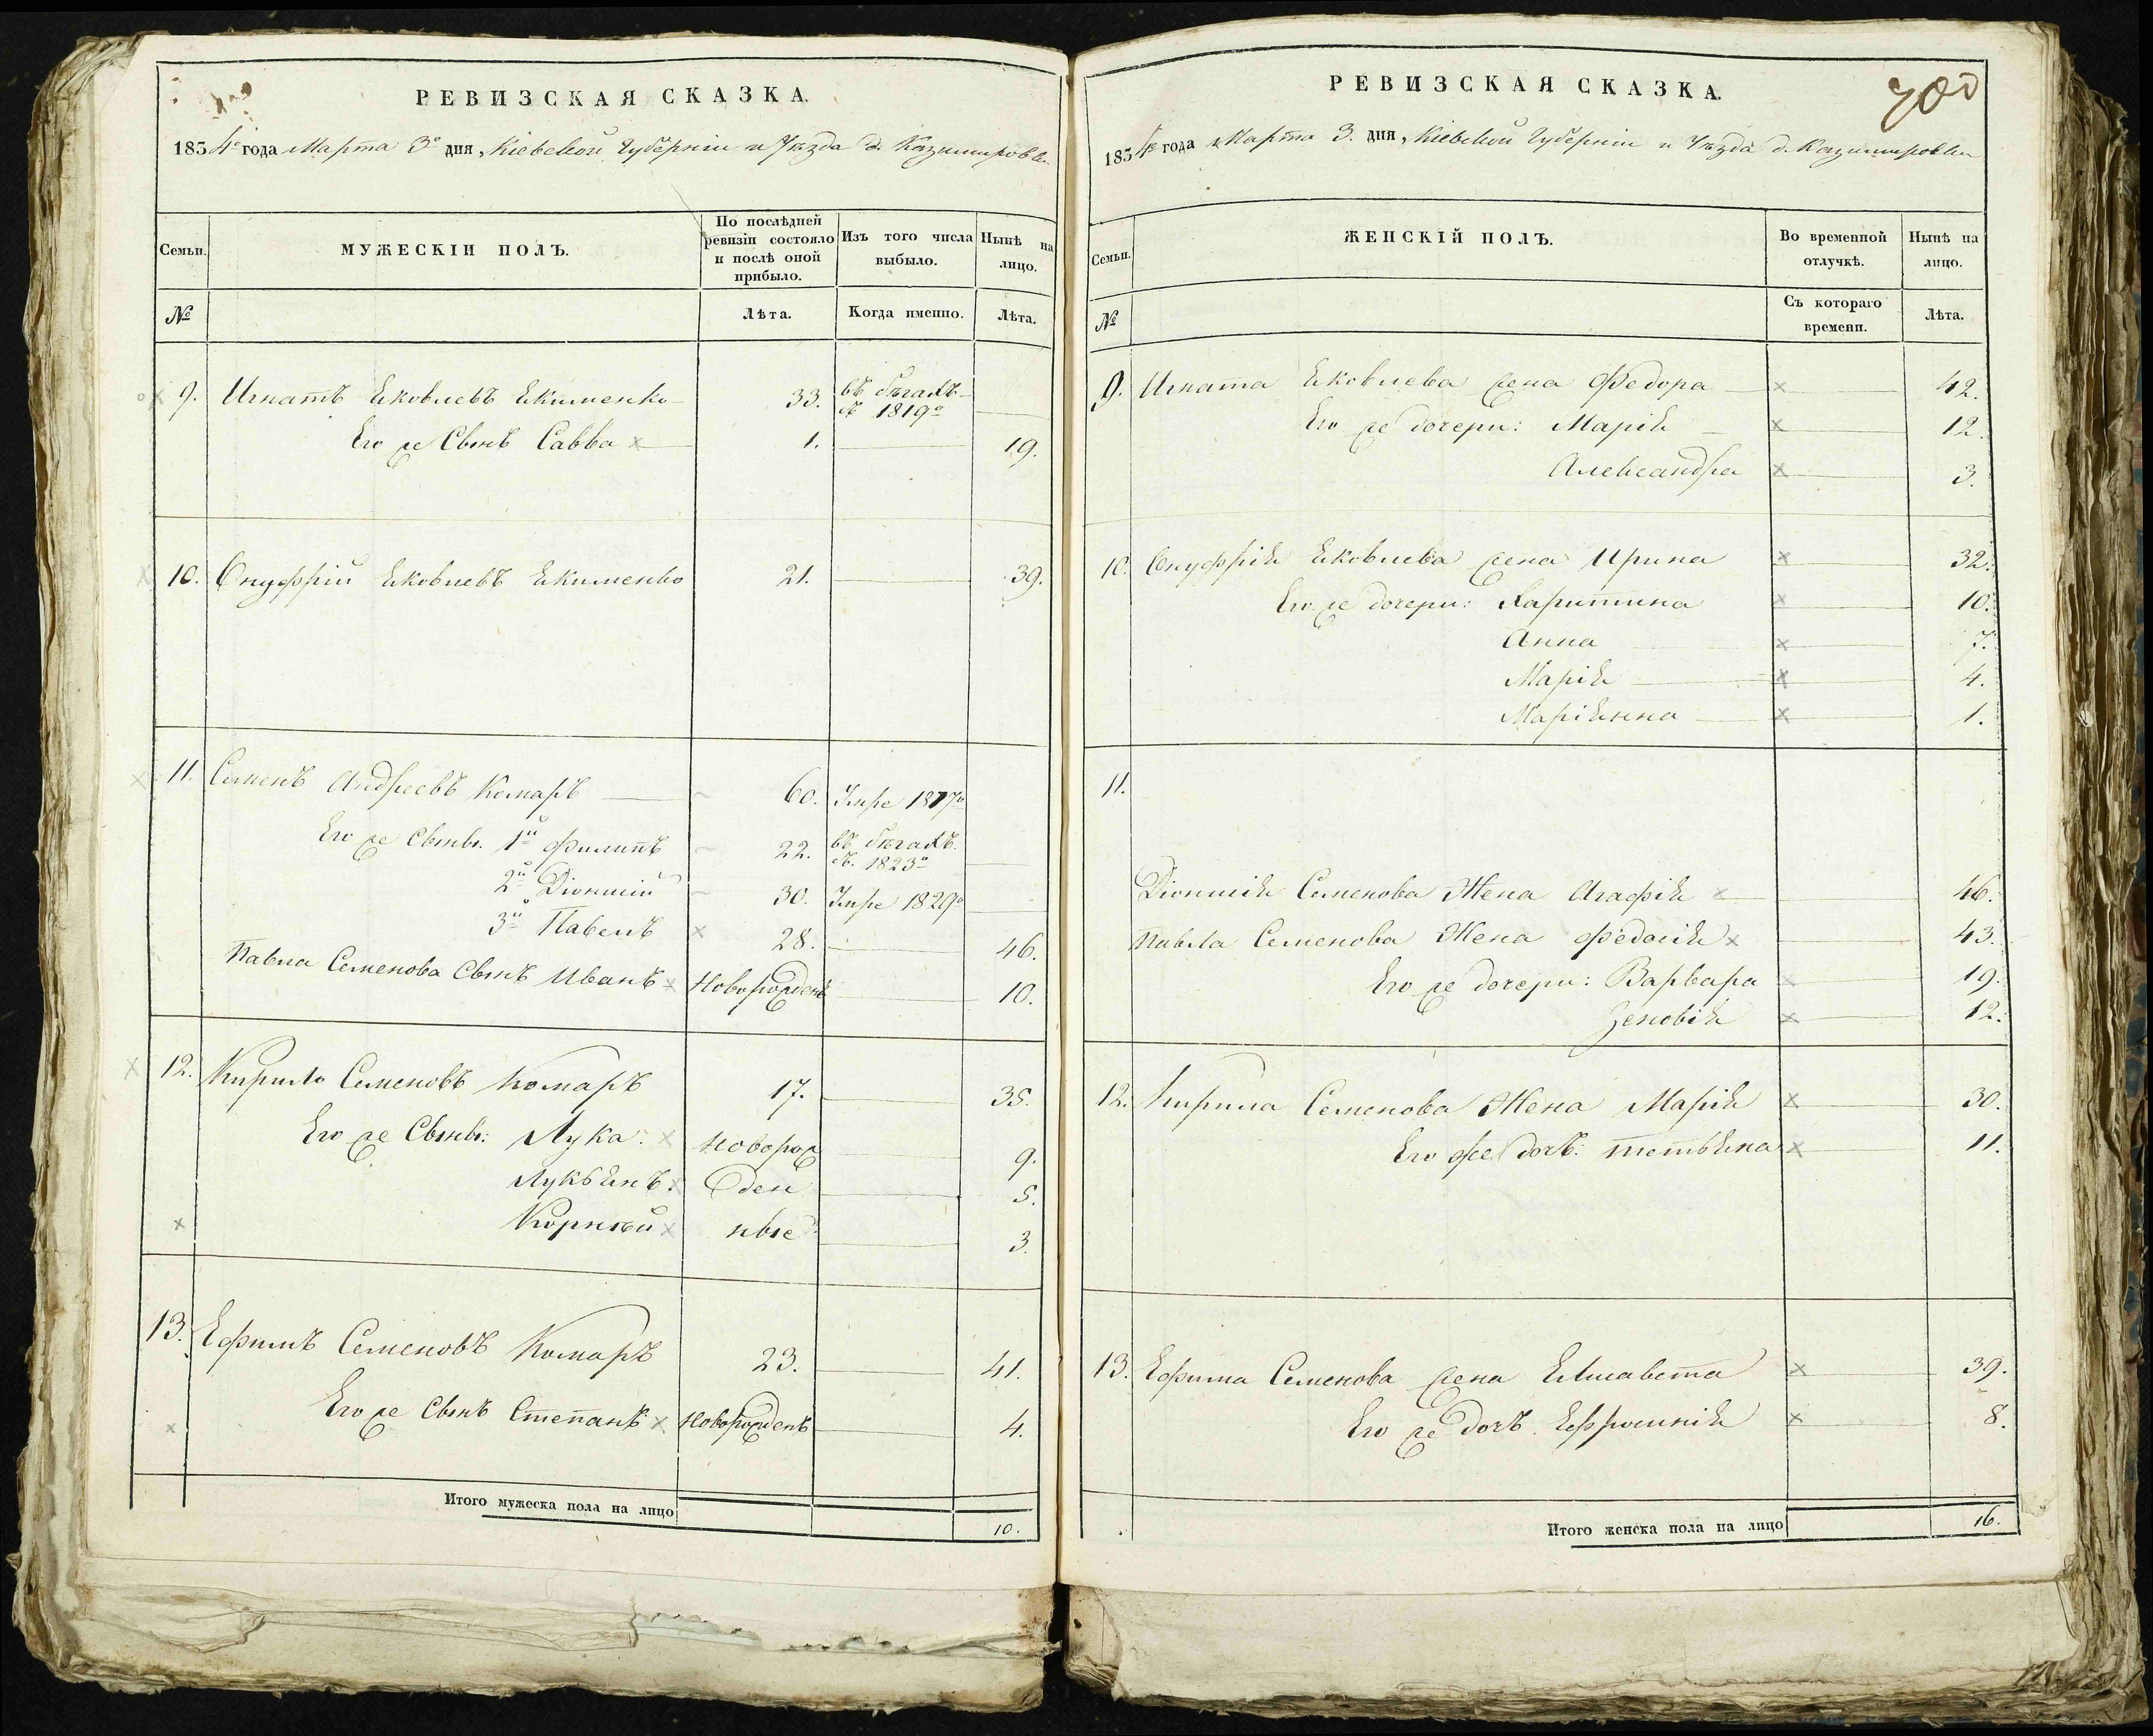 РЕВИЗСКАЯ СКАЗКА.
1834го года Марта 3го дня, Кіевской Губерніи и Уѣзда д. Казимировки
Семьи. МУЖЕСКІЙ ПОЛЪ. По послѣдней ревизіи состояло и послѣ оной прибыло. Изъ того числа выбыло. Нынѣ на лицо.
№ Лѣта. Когда именно. Лѣта.
9. Игнатъ Яковлевъ Якименко 33. въ бѣгахъ съ 1819го
Его же Сынъ Савва 1. 19.
10. Онуфрій Яковлевъ Якименко 21. 39.
11. Семенъ Андреевъ Комаръ 60. Умре 1817го
Его же Сыны. 1й Филипъ 22. въ бѣгахъ. съ. 1823го
2й Діонисій 30. Умре 1829го
3й Павелъ 28. 46.
Павла Семенова Сынъ Иванъ Новорожденъ 10.
12. Кирило Семеновъ Комаръ 17. 35.
Его же Сыны: Лука: Новорож 9.
Лукьянъ: ден 5.
Корнѣй ные 3.
13. Ефимъ Семеновъ Комаръ 23. 41.
Его же Сынъ Степанъ Новорожденъ 4.
Итого мужеска пола на лицо 10.
РЕВИЗСКАЯ СКАЗКА.
700
1834го года Марта 3. дня, Кіевской Губерніи и Уѣзда д. Казимировки
Семьи. ЖЕНСКІЙ ПОЛЪ. Во временной отлучкѣ. Нынѣ на лицо.
№ Съ котораго времени. Лѣта.
9. Игната Яковлева жена Федора 42.
Его же дочери: Марія 12.
Александра 3.
10. Онуфрія Яковлева жена Ирина 32.
Его же дочери: Харитина 10.
Анна 7.
Марія 4.
Маріянна 1.
11.
Діонисія Семенова Жена Агафія 46.
Павла Семенова Жена Федосія 43.
Его же дочери: Варвара 19.
Зеновія 12.
12. Кирила Семенова Жена Марія 30.
Его же дочь: тетьяна 11.
13. Ефима Семенова жена Елисавета 39.
Его же дочь. Ефросинія 8.
Итого женска пола на лицо 16.